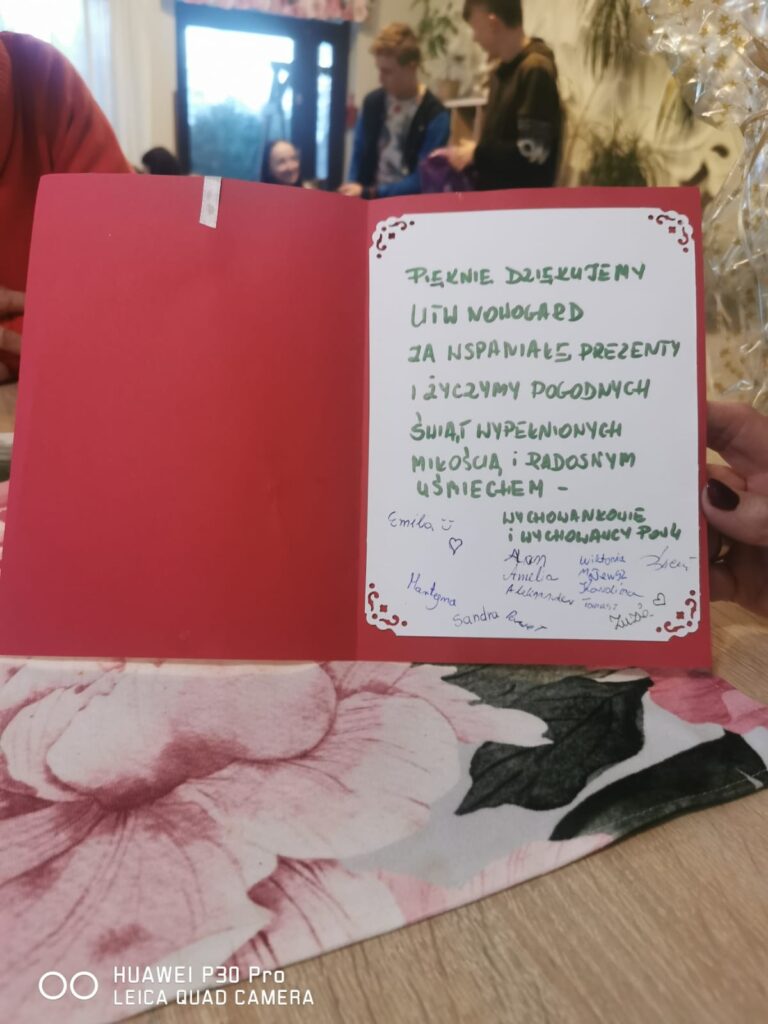 PIĘKNIE DZIĘKUJEMY
UTW NOWOGARD
ZA WSPANIAŁE PREZENTY
I ŻYCZYMY POGODNYCH
ŚWIĄT WYPEŁNIONYCH
MIŁOŚCIĄ i RADOSNYM
UŚMIECHEM -
WYCHOWANKOWIE
i WYCHOWAWCY
Emila
Alan
Amelia
Aleksander
Wiktoria
Mateusz
Karolina
Tomasz
Martyna
Sandra
Zuzia
HUAWEI P30 Pro
LEICA QUAD CAMERA